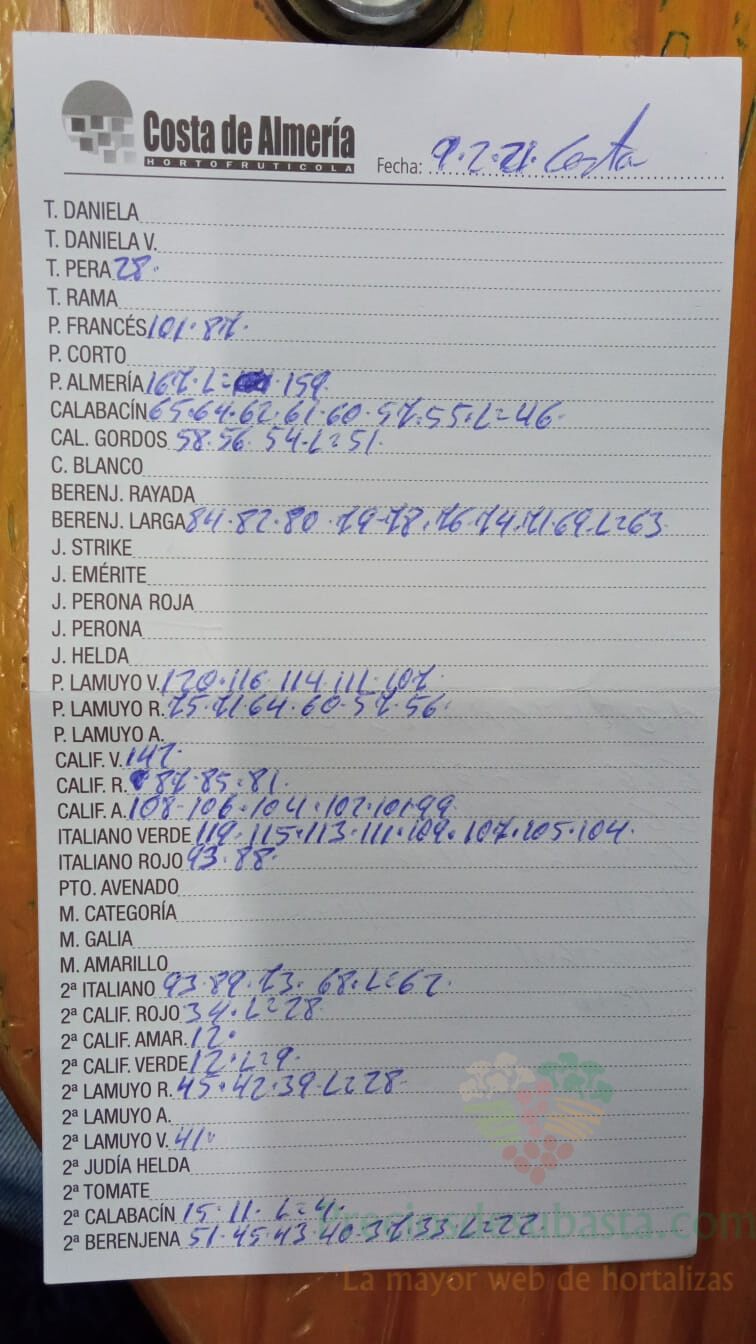 Costa de Almería
HORTOFRUTICOLA
Fecha: 9.2.21. Costa
T. DANIELA
T. DANIELA V.
T. PERA 28.
T. RAMA
P. FRANCÉS 101.87.
P. CORTO
P. ALMERÍA 167.L= 159
CALABACÍN 65.64.62.61.60.57.55.L=46.
CAL. GORDOS 58.56.54.L=51.
C. BLANCO
BERENJ. RAYADA
BERENJ. LARGA 84.82.80.79-78.76.74.71.69.L=63
J. STRIKE
J. EMÉRITE
J. PERONA ROJA
J. PERONA
J. HELDA
P. LAMUYO V. 120.116.114.111.107.
P. LAMUYO R. 75.71 64.60.57.56.
P. LAMUYO A.
CALIF. V. 147.
CALIF. R. 87.85.81.
CALIF. A. 108-106.104.102.101.99.
ITALIANO VERDE 119.115.113.111.109.107.105.104.
ITALIANO ROJO 93.88.
PTO. AVENADO
M. CATEGORÍA
M. GALIA
M. AMARILLO
2ª ITALIANO 93.89.73.68.L=62.
2ª CALIF. ROJO 34.L=28.
2ª CALIF. AMAR. 12.
2ª CALIF. VERDE 12.L=9.
2ª LAMUYO R. 45.42.39.L=28.
2ª LAMUYO A.
2ª LAMUYO V. 41.
2ª JUDÍA HELDA
2ª TOMATE
2ª CALABACÍN 15.11.L=4.
2ª BERENJENA 51.45.43.40.37.33.L=22
Preciosdesubasta.com
La mayor web de hortalizas